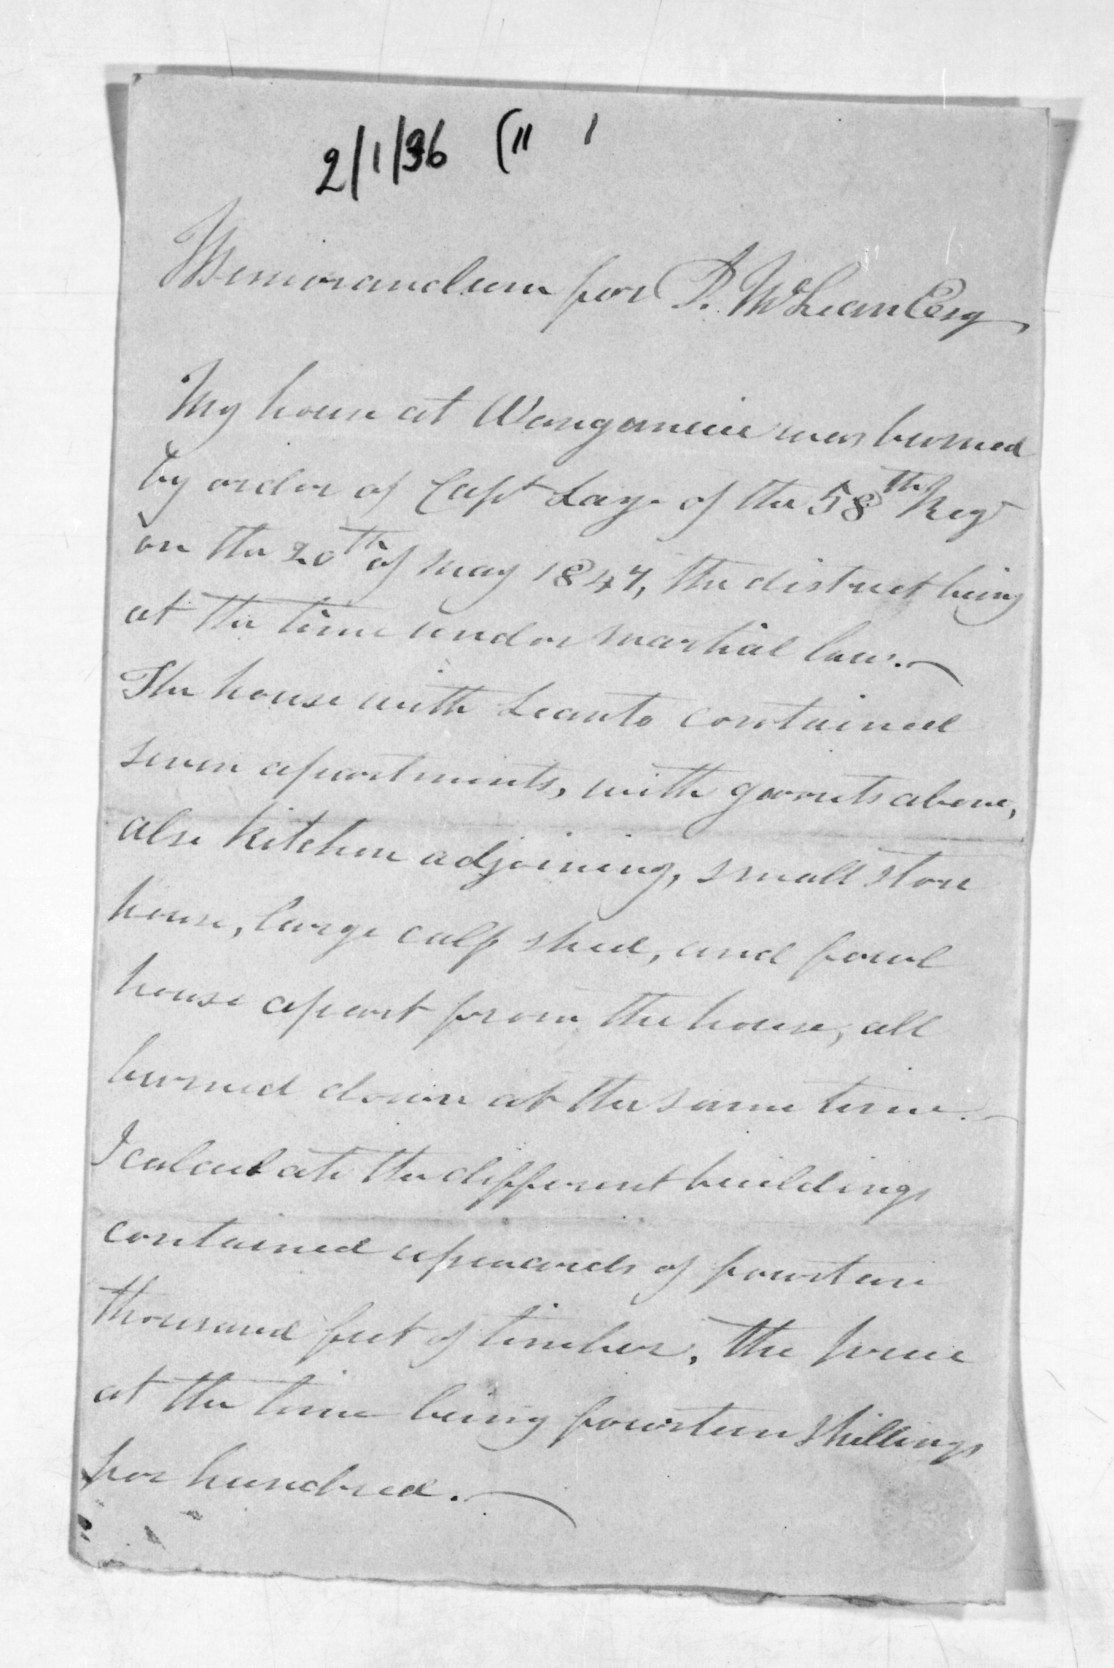 2/1/36 (" 1
Memorandum for D. McLean Esq
My house at Wanganui was burned
by order of Capt Laye of the 58th Regt
on the 20th of May 1847, the district being
at the time under martial law.
The house with Leanto contained
seven apartments, with garrets above,
also kitchen adjoining, small store
house, large calf shed, and fowl
house apart from the house, all
burned down at the same time.
I calculate the different buildings
contained upwards of fourteen
thousand feet of timber, the price
at the time being fourteen shillings
per hundred.